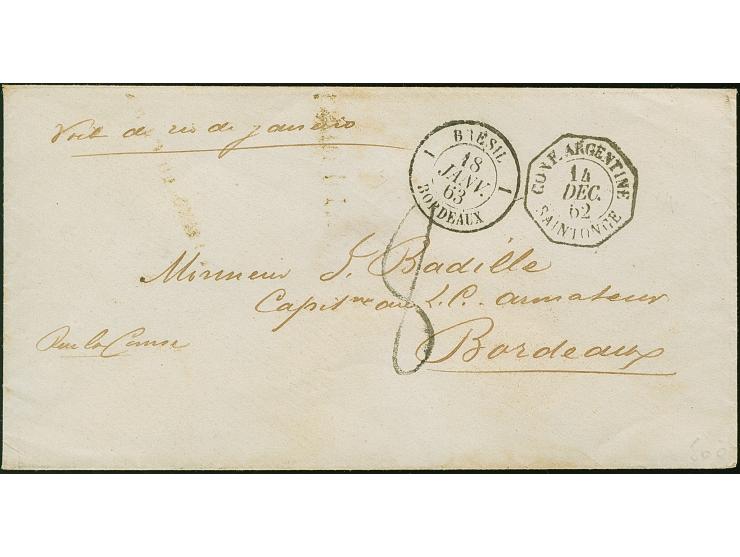 Voie de rio de janeiro
1 BRÉSIL 1
18
JANV.
63
BORDEAUX
CONF. ARGENTINE
14
DEC.
62
SAINTONGE
8
Monsieur J. Badille
Capit ne au L.C. armateur
Bordeaux
Rue la
300